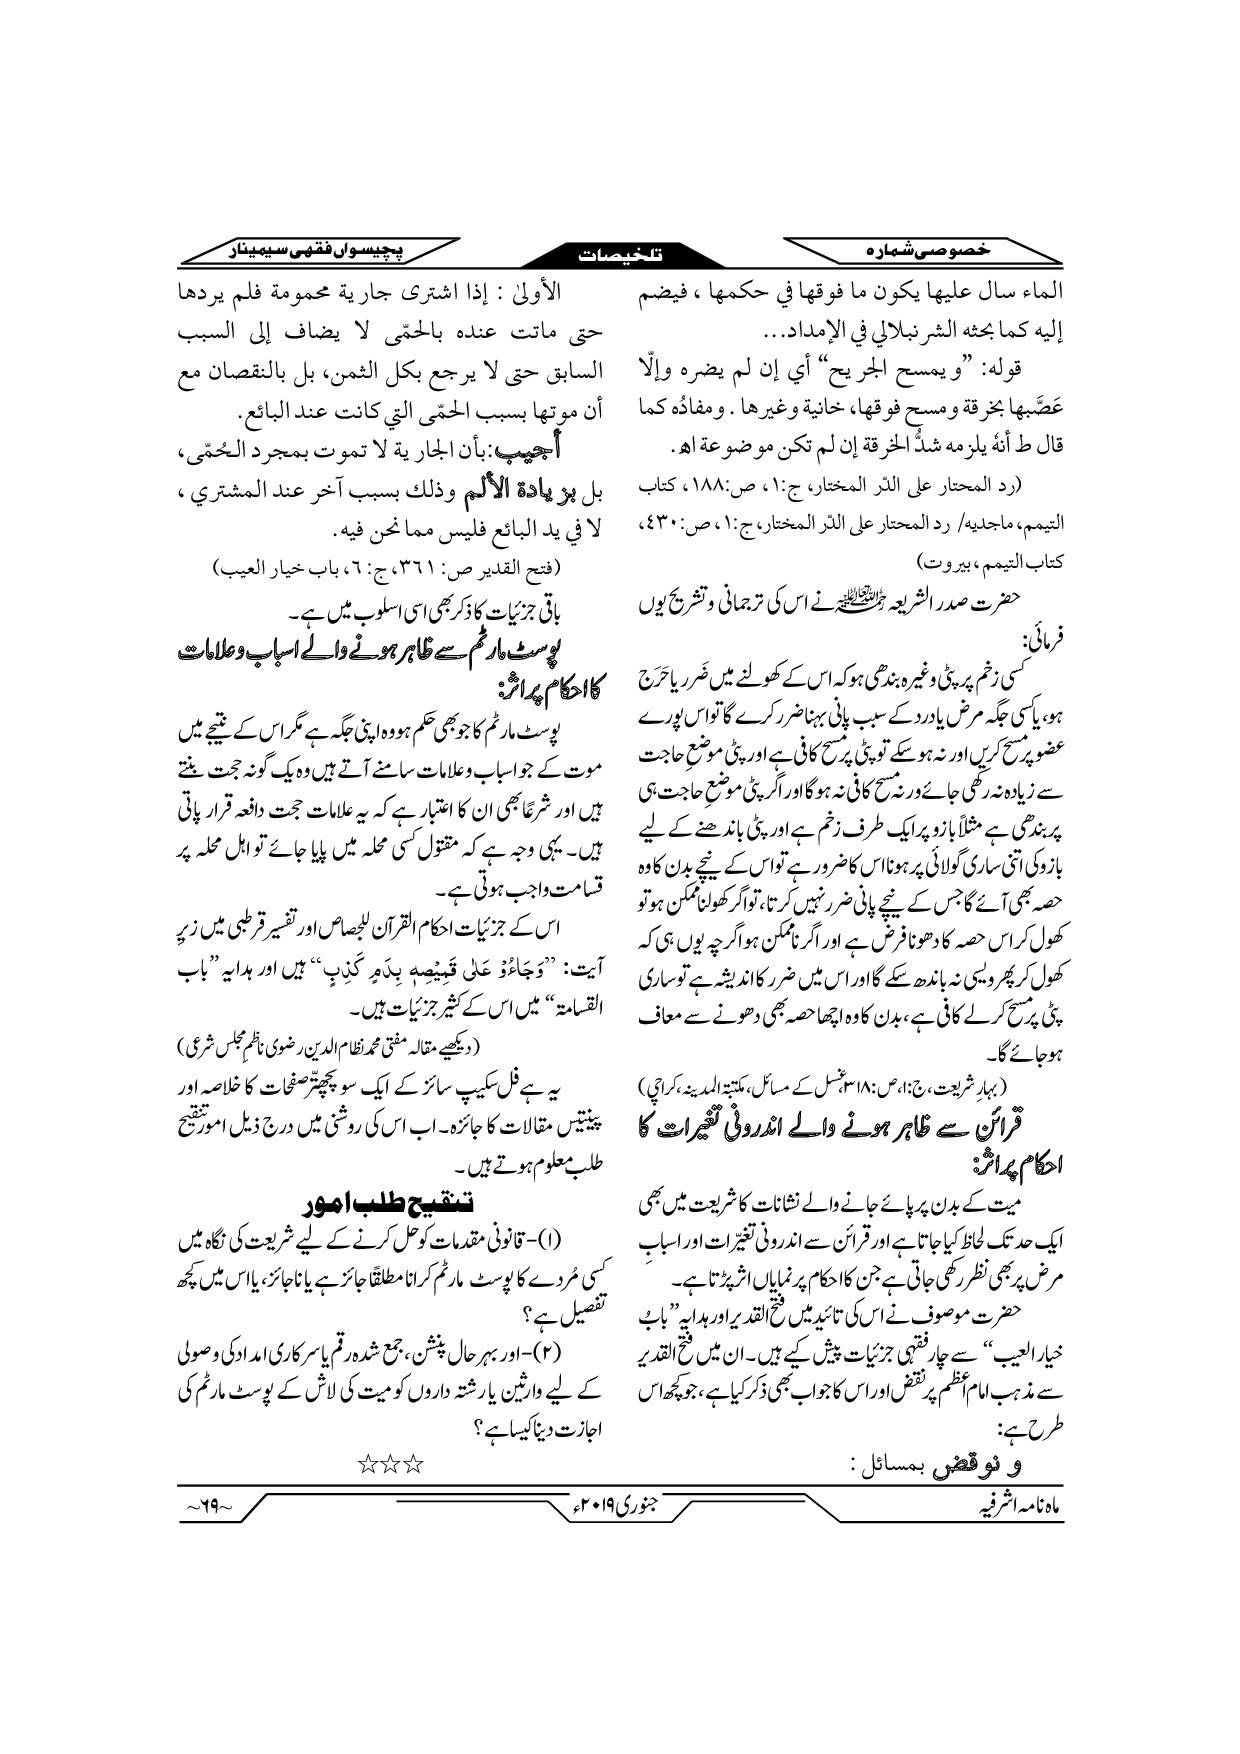 خصوصی شمارہ
تلخیصات
پچیسواں فقہی سیمینار
الماء سال عليها يكون ما فوقها في حكمها ، فيضم
إليه كما بحثه الشرنبلالي في الإمداد...
قوله: ”ويمسح الجريح“ أي إن لم يضره وإلّا
عَصَّبها بخرقة ومسح فوقها، خانية وغيرها . ومفادُه كما
قال ط أنهٗ يلزمه شدُّ الخرقة إن لم تكن موضوعة اھ.
(رد المحتار على الدّر المختار، ج:۱، ص:۱۸۸، كتاب
التيمم، ماجديه/ رد المحتار على الدّر المختار، ج:۱، ص:٤٣٠،
كتاب التيمم، بيروت)
حضرت صدر الشریعہ رحمۃ اللہ تعالیٰ علیہ نے اس کی ترجمانی و تشریح یوں
فرمائی:
کسی زخم پر پٹی وغیرہ بندھی ہو کہ اس کے کھولنے میں ضَرر یا حَرَج
ہو، یا کسی جگہ مرض یا درد کے سبب پانی بہنا ضرر کرے گا تو اس پورے
عضو پر مسح کریں اور نہ ہو سکے تو پٹی پر مسح کافی ہے اور پٹی موضعِ حاجت
سے زیادہ نہ رکھی جائے ورنہ مسح کافی نہ ہوگا اور اگر پٹی موضعِ حاجت ہی
پر بندھی ہے مثلاً بازو پر ایک طرف زخم ہے اور پٹی باندھنے کے لیے
بازو کی اتنی ساری گولائی پر ہونا اس کا ضرور ہے تو اس کے نیچے بدن کا وہ
حصہ بھی آئے گا جس کے نیچے پانی ضرر نہیں کرتا، تو اگر کھولنا ممکن ہو تو
کھول کر اس حصہ کا دھونا فرض ہے اور اگر ناممکن ہو اگرچہ یوں ہی کہ
کھول کر پھر ویسی نہ باندھ سکے گا اور اس میں ضرر کا اندیشہ ہے تو ساری
پٹی پر مسح کر لے کافی ہے، بدن کا وہ اچھا حصہ بھی دھونے سے معاف
ہو جائے گا۔
(بہارِ شریعت، ج:۱، ص:۳۱۸، غسل کے مسائل، مکتبۃ المدینہ، کراچی)
قرائن سے ظاہر ہونے والے اندرونی تغیرات کا
احکام پر اثر:
میت کے بدن پر پائے جانے والے نشانات کا شریعت میں بھی
ایک حد تک لحاظ کیا جاتا ہے اور قرائن سے اندرونی تغیّرات اور اسبابِ
مرض پر بھی نظر رکھی جاتی ہے جن کا احکام پر نمایاں اثر پڑتا ہے۔
حضرت موصوف نے اس کی تائید میں فتح القدیر اور ہدایہ ”بابُ
خیار العیب“ سے چار فقہی جزئیات پیش کیے ہیں۔ ان میں فتح القدیر
سے مذہب امام اعظم پر نقض اور اس کا جواب بھی ذکر کیا ہے، جو کچھ اس
طرح ہے:
و نوقض بمسائل :
الأولىٰ : إذا اشترى جارية محمومة فلم يردها
حتى ماتت عنده بالحمّى لا يضاف إلى السبب
السابق حتى لا يرجع بكل الثمن، بل بالنقصان مع
أن موتها بسبب الحمّى التي كانت عند البائع.
أجيب:بأن الجارية لا تموت بمجرد الحُمّى،
بل بزيادة الألم وذلك بسبب آخر عند المشتري ،
لا في يد البائع فليس مما نحن فيه.
(فتح القدير ص: ٣٦١، ج: ٦، باب خيار العيب)
باقی جزئیات کا ذکر بھی اسی اسلوب میں ہے۔
پوسٹ مارٹم سے ظاہر ہونے والے اسباب و علامات
کا احکام پر اثر:
پوسٹ مارٹم کا جو بھی حکم ہو وہ اپنی جگہ ہے مگر اس کے نتیجے میں
موت کے جو اسباب و علامات سامنے آتے ہیں وہ یک گونہ حجت بنتے
ہیں اور شرعًا بھی ان کا اعتبار ہے کہ یہ علامات حجت دافعہ قرار پاتی
ہیں۔ یہی وجہ ہے کہ مقتول کسی محلہ میں پایا جائے تو اہل محلہ پر
قسامت واجب ہوتی ہے۔
اس کے جزئیات احکام القرآن للجصاص اور تفسیر قرطبی میں زیر
آیت: ”وَجَآءُوْ عَلٰى قَمِيْصِهٖ بِدَمٍ كَذِبٍ“ ہیں اور ہدایہ ”باب
القسامۃ“ میں اس کے کثیر جزئیات ہیں۔
(دیکھیے مقالہ مفتی محمد نظام الدین رضوی ناظم مجلس شرعی)
یہ ہے فل سکیپ سائز کے ایک سو پچھتّر صفحات کا خلاصہ اور
پینتیس مقالات کا جائزہ۔ اب اس کی روشنی میں درج ذیل امور تنقیح
طلب معلوم ہوتے ہیں۔
تنقیح طلب امور
(۱)- قانونی مقدمات کو حل کرنے کے لیے شریعت کی نگاہ میں
کسی مُردے کا پوسٹ مارٹم کرانا مطلقًا جائز ہے یا ناجائز، یا اس میں کچھ
تفصیل ہے؟
(۲)- اور بہر حال پنشن، جمع شدہ رقم یا سرکاری امداد کی وصولی
کے لیے وارثین یا رشتہ داروں کو میت کی لاش کے پوسٹ مارٹم کی
اجازت دینا کیسا ہے؟
☆☆☆
ماہ نامہ اشرفیہ
جنوری ۲۰۱۹ء
~۶۹~